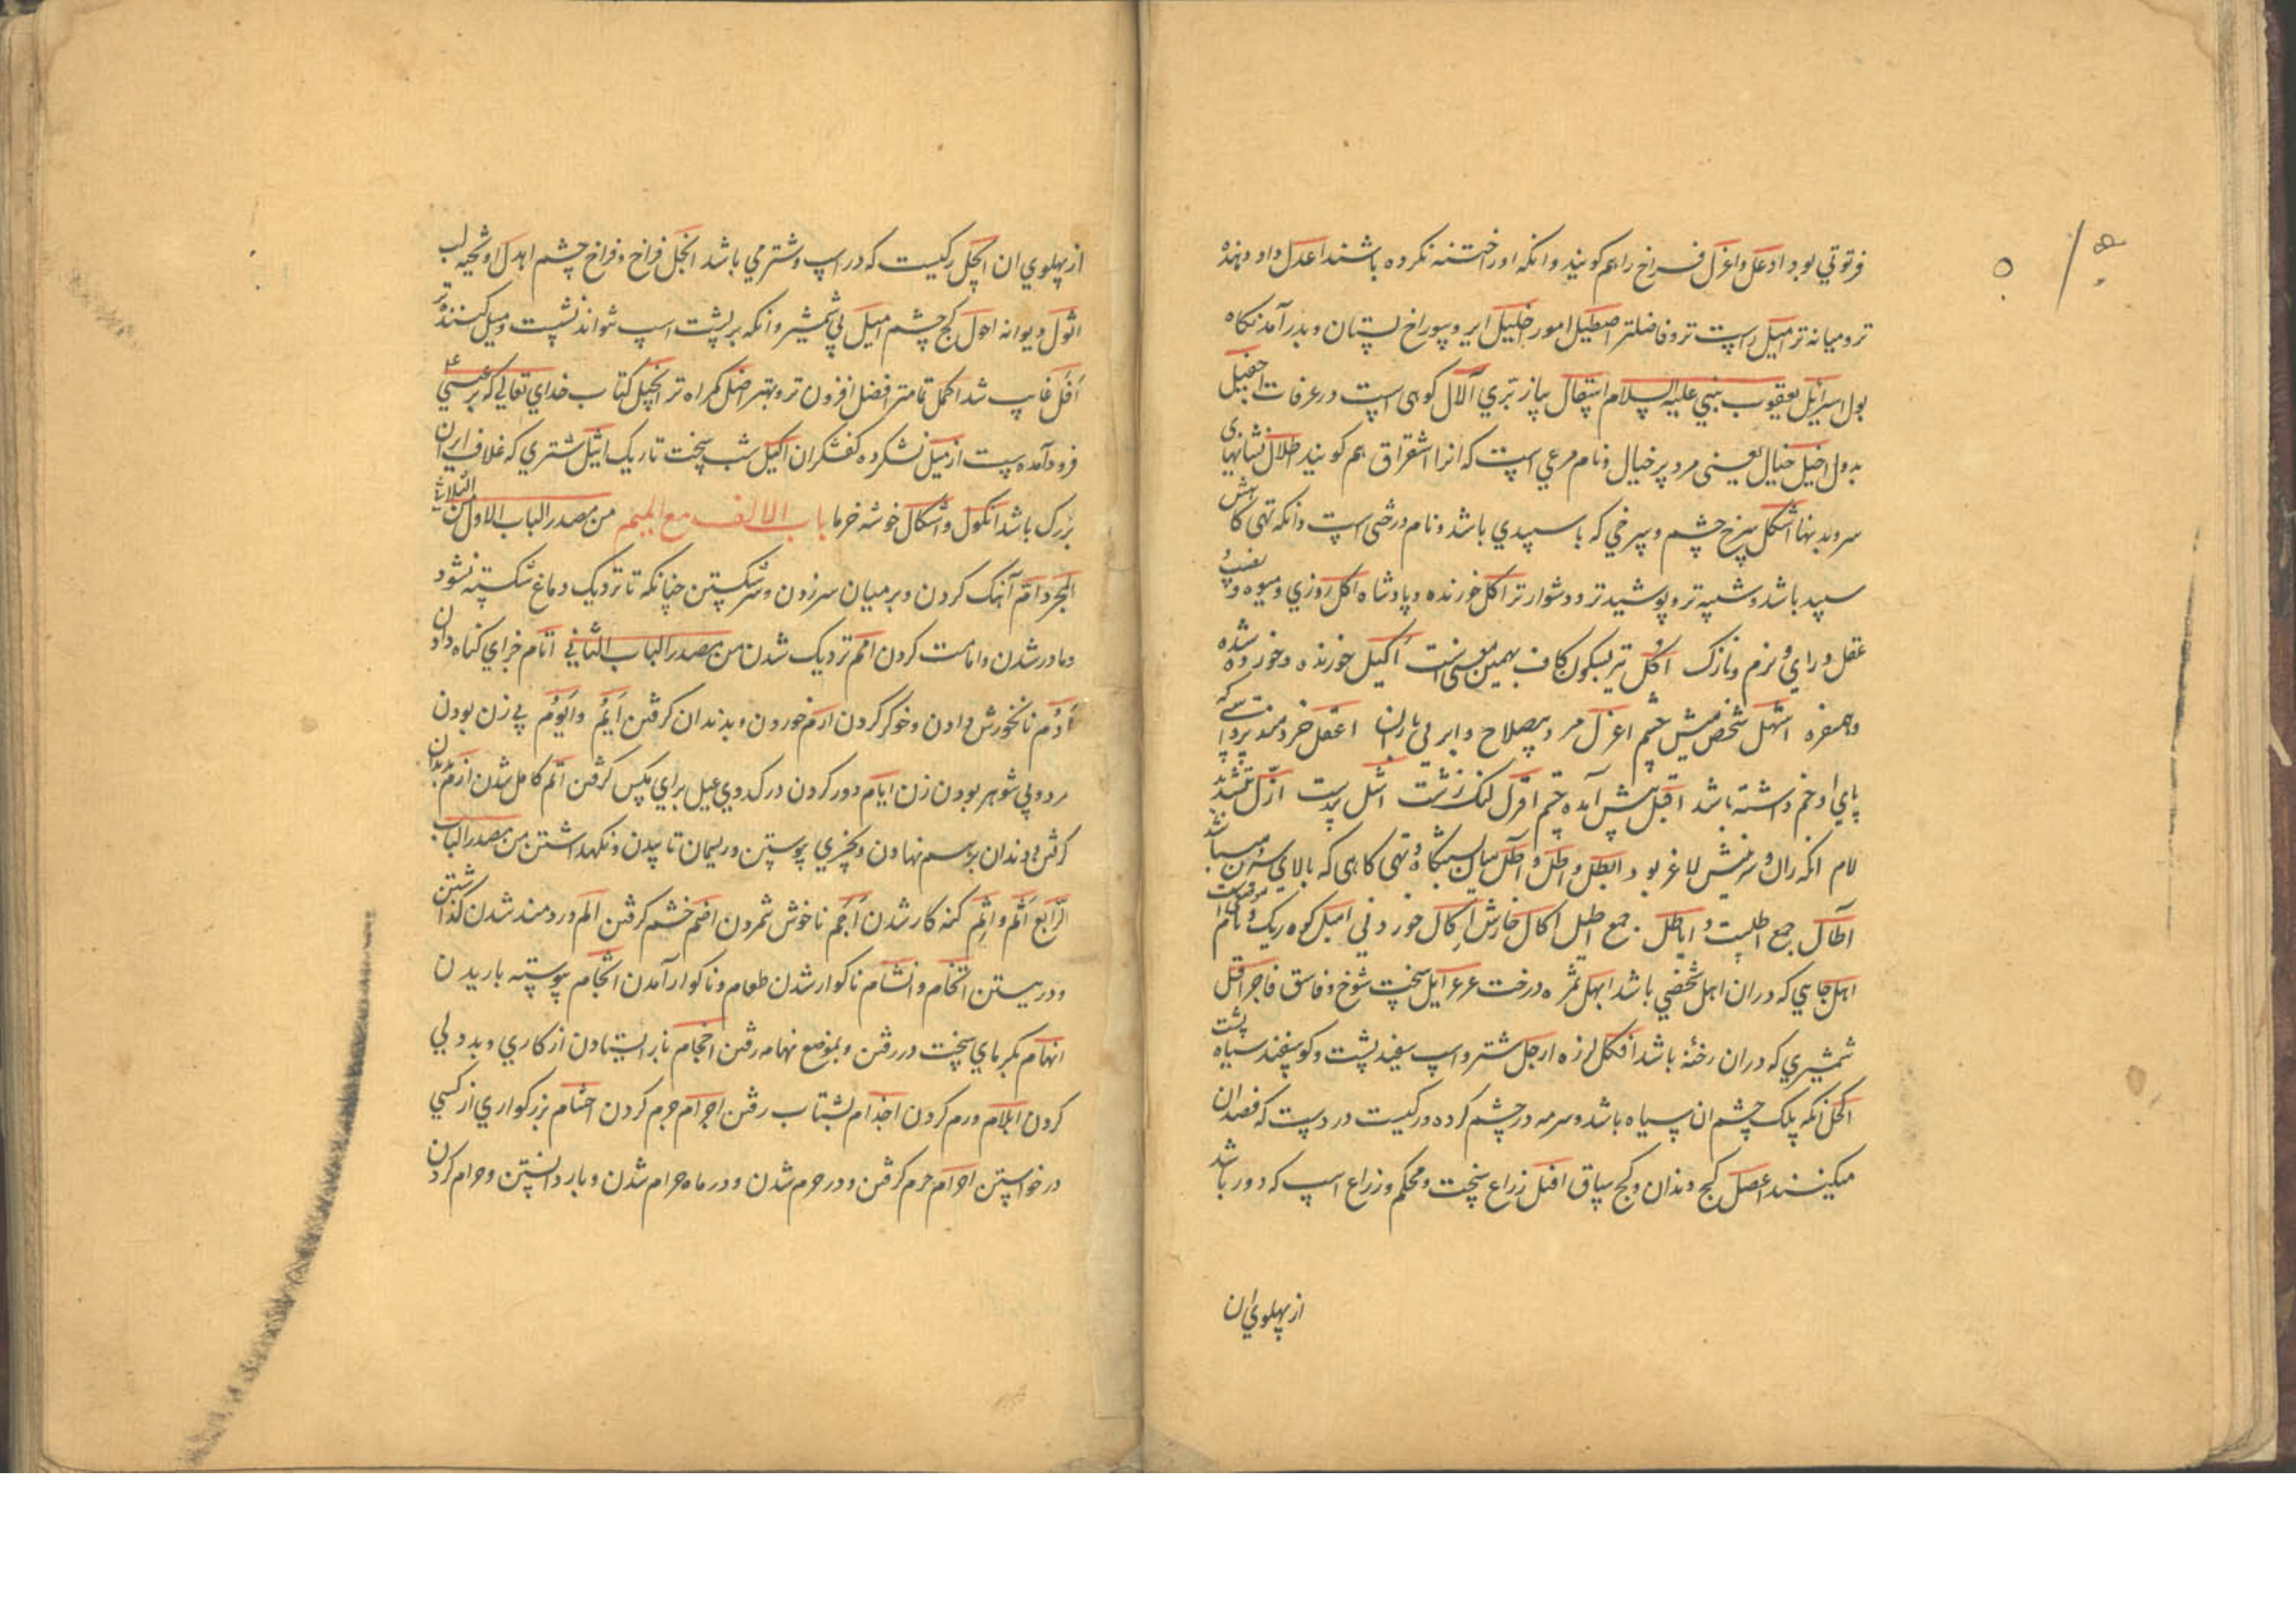 فرتوتي بود ادعل واغرل فراخ راهم كويند وانكه اورا ختنه نكرده باشند اعدل داد دهنده
تر و ميانه تر اميل راست تر و فاضلتر اصطيل امور خليل اير و سوراخ پستان و بدر آمدنكاه
بول اسرائيل يعقوب نبي عليه السلام اسقال پياز بري آلال كوهى است در عرفات اجفيل
بددل اخيل خيال يعنى مرد پر خيال و نام مرغي است كه انرا اشقراق هم كويند اطلال نشانهاى
سرويدنها اشكل سرخ چشم و سرخي كه با سپيدي باشد و نام درختى است وانكه تهى كاهش
سپيد باشد و شبيه تر و پوشيده تر و دشوار تر آكل خورنده و پادشاه اكل روزي و ميوه و نصيب و
عقل و راي و نرم و نازك اكل نيز بسكون كاف بهمين معنى است اكيل خورنده و خورده شده
و همسفره اشهل شخص ميش چشم اعزل مرد بي سلاح و ابر بي باران اعقل خردمندتر و كسي كه
پاي او خم داشته باشد اقبل پيش آمده چشم اقزل لنك زشت اشل بيدست ازل بتشديد
لام انكه ران و سرينش لاغر بود ايطل و اطل و اطل ميان سبكاه و تهى كاهى كه بالاي سرين ميباشد
آطال جمع اطلست و اياطل جمع ايطل اكال خارش اكال خوردني اميل كوه ريك و نام موضعيست
اهل جايي كه دران اهل شخصي باشد ابهل ثمره درخت عرعر ايل سخت شوخ و فاسق فاجر افل
شمشيري كه دران رخنه باشد افكل لرزه ارجل شتر و اسپ سفيد پشت و كوسفند سياه پشت
اكحل انكه پلك چشم ان سياه باشد و سرمه در چشم كرده و ركيست در دست كه فصد ان
ميكنند اعصل كج دندان و كج ساق افتل زراع سخت و محكم و زراع اسپ كه دور باشد
از پهلوي ان
از پهلوي ان ابجل ركيست كه در اسپ و شتر مي باشد انجل فراخ و فراخ چشم اهدل اويخته لب
اثول ديوانه احول كج چشم اميل بي شمشير وانكه بر پشت اسپ نتواند نشست و ميل كننده تر
افل غايب شد اكمل تمامتر افضل افزون تر و بهتر اضل كمراه تر انجيل كتاب خداي تعالي كه بر عيسي ع
فرود آمده است ازميل نشكرده كفشكران اليل شب سخت تاريك اثيل شتري كه غلاف اير ان
بزرك باشد انكول و اشكال خوشه خرما باب الالف مع الميم من مصدر الباب الاول من الثلاثي
المجرد ام آهنك كردن و بر ميان سر زدن و سر شكستن چنانكه تا نزديك دماغ شكسته شود
و مادر شدن و امامت كردن امم نزديك شدن من مصدر الباب الثاني اثام جزاي كناه دادن
ادم نانخورش دادن و خوكر كردن ارم خوردن و بدندان كرفتن ايم و ايوم بي زن بودن
مرد و بي شوهر بودن زن ايام دور كردن درك دوي عيل براي مكس كرفتن اتم كامل شدن ازم بدندان
كرفتن و دندان برسم نهادن و بچيزي پيوستن و ريسمان تابيدن و نكهداشتن من مصدر الباب
الرابع اثم و اثم كنه كار شدن اجم ناخوش شمردن اضم خشم كرفتن الم دردمند شدن كذاشتن
و در بستن اتخام و انشام ناكوار شدن طعام و ناكوار آمدن اثجام پيوسته باريدن
انهام بكرماي سخت در رفتن و بموضع تهامه رفتن احجام باز ايستادن از كاري و بددلي
كردن ايلام ورم كردن اجذام بشتاب رفتن اجرام جرم كردن احشام بزركواري از كسي
درخواستن احرام حرم كرفتن و در حرم شدن و در ماه حرام شدن و باز داشتن و حرام كردن